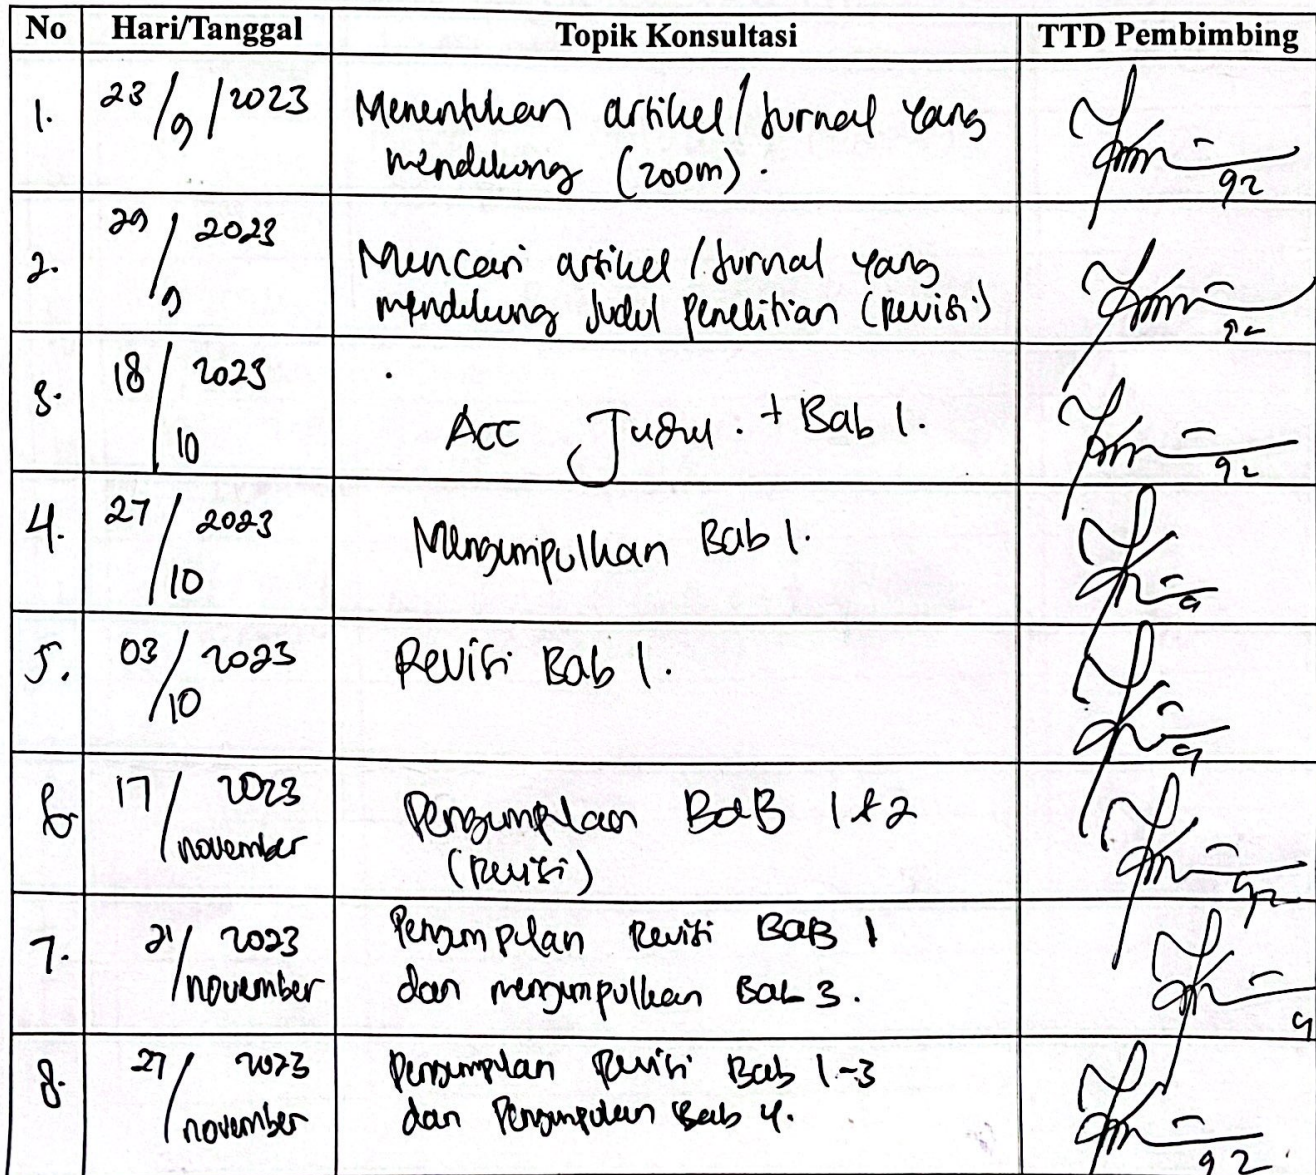 No Hari/Tanggal Topik Konsultasi TTD Pembimbing
1. 23/9/2023 Menentukan artikel/jurnal yang
mendukung (zoom).
2. 29/9 2023 Mencari artikel/jurnal yang
mendukung Judul Penelitian (Revisi)
3. 18/10 2023 ACC Judul. + Bab 1.
4. 27/10 2023 Mengumpulkan Bab 1.
5. 03/10 2023 Revisi Bab 1.
6 17/november 2023 Pengumpulan BaB 1 & 2
(Revisi)
7. 21/november 2023 Pengumpulan Revisi BaB 1
dan mengumpulkan Bab 3.
8. 27/november 2023 Pengumpulan Revisi Bab 1-3
dan Pengumpulan Bab 4.